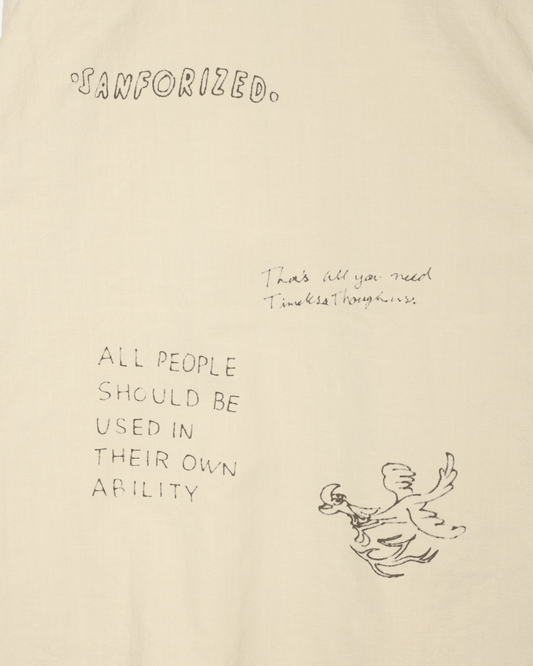 ·SANFORIZED.
That's all you need
Timeless Thoughtus.
ALL PEOPLE
SHOULD BE
USED IN
THEIR OWN
ABILITY